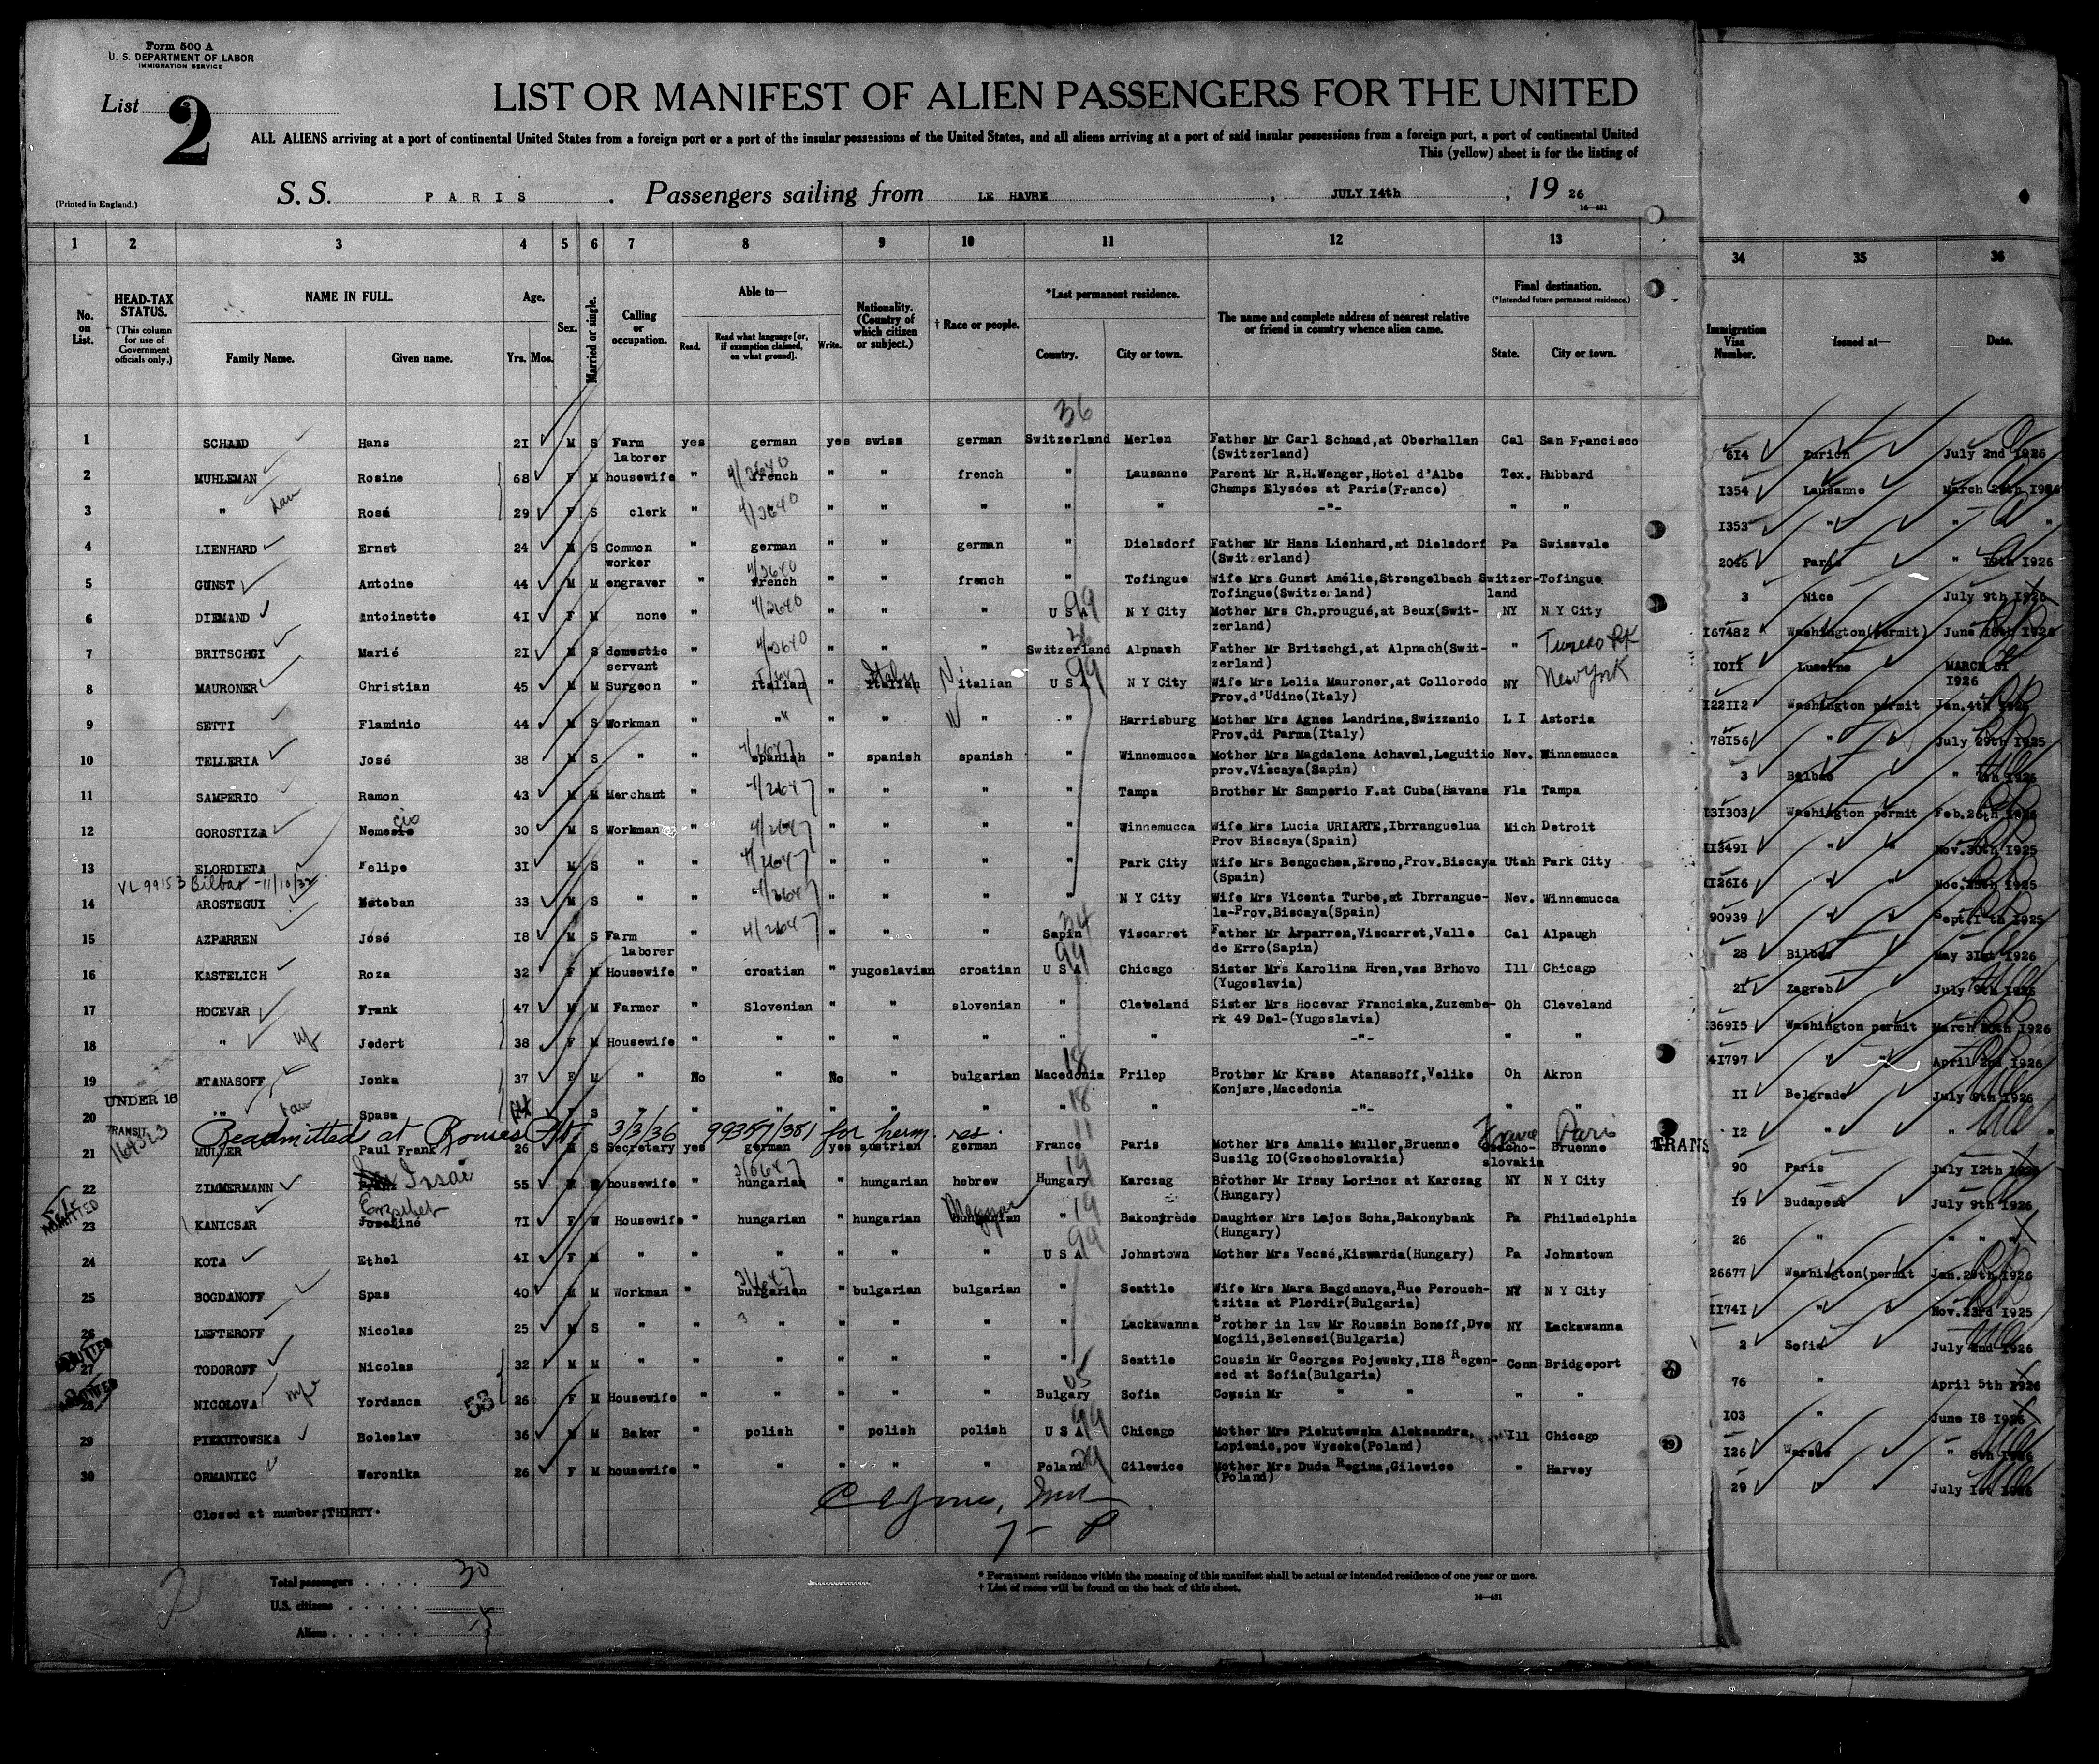 Form 500 A
U. S. DEPARTMENT OF LABOR
IMMIGRATION SERVICE
List 2
LIST OR MANIFEST OF ALIEN PASSENGERS FOR THE UNITED
ALL ALIENS arriving at a port of continental United States from a foreign port or a port of the insular possessions of the United States, and all aliens arriving at a port of said insular possessions from a foreign port, a port of continental United
This (yellow) sheet is for the listing of
(Printed in England.)
S. S. PARIS . Passengers sailing from LE HAVRE , JULY I4th , 19 26
1 2 3 4 5 6 7 8 9 10 11 12 13 34 35 36
No. on List.
HEAD-TAX STATUS. (This column for use of Government officials only.)
NAME IN FULL. Family Name. Given name.
Age. Yrs. Mos.
Sex.
Married or single.
Calling or occupation.
Able to— Read. Read what language [or, if exemption claimed, on what ground]. Write.
Nationality. (Country of which citizen or subject.)
† Race or people.
*Last permanent residence. Country. City or town.
The name and complete address of nearest relative or friend in country whence alien came.
Final destination. (*Intended future permanent residence.) State. City or town.
Immigration Visa Number. Issued at— Date.
36
1 SCHAAD Hans 2I M S Farm laborer yes german yes swiss german Switzerland Merlen Father Mr Carl Schaad,at Oberhallan (Switzerland) Cal San Francisco 614 Zurich July 2nd I926
2 MUHLEMAN Rosine 68 F M housewife " french " " french " Lausanne Parent Mr R.H.Wenger,Hotel d'Albe Champs Elysées at Paris(France) Tex. Hubbard I354 Lausanne March 29th I926
3 " Rosé 29 F S clerk " " " " " " -"- " " I353 " " "
4 LIENHARD Ernst 24 M S Common worker " german " " german " Dielsdorf Father Mr Hans Lienhard,at Dielsdorf (Switzerland) Pa Swissvale 2046 Paris " I9th I926
5 GUNST Antoine 44 M M engraver " french " " french " Tofingue Wife Mrs Gunst Amélie,Strengelbach Tofingue(Switzerland) Switzer-land Tofingue 3 Nice July 9th I926
6 DIEMAND Antoinette 4I F M none " " " " U S A N Y City Mother Mrs Ch,prougué,at Beux(Swit-zerland) NY N Y City I67482 Washington(permit) June I6th I926
7 BRITSCHGI Marié 2I M S domestic servant " " " " Switzerland Alpnawh Father Mr Britschgi,at Alpnach(Swit-zerland) " Tuxedo Pk I0II Luzerne MARCH 3I I926
8 MAURONER Christian 45 M M Surgeon " italian " Italy italian U S A N Y City Wife Mrs Lelia Mauroner,at Colloredo Prov.d'Udine(Italy) NY New York I22II2 Washington permit Jan.4th I926
9 SETTI Flaminio 44 M S Workman " " " " " " Harrisburg Mother Mrs Agnes Landrina,Swizzanio Prov.di Parma(Italy) L I Astoria 78I56 " July 29th I925
10 TELLERIA José 38 M S " " spanish " spanish spanish " Winnemucca Mother Mrs Magdalena Achavel,Leguitio prov.Viscaya(Sapin) Nev. Winnemucca 3 Bilbao " 7th I926
11 SAMPERIO Ramon 43 M M Merchant " " " " " Tampa Brother Mr Samperio F.at Cuba(Havana Fla Tampa I3I303 Washington permit Feb.26th I926
12 GOROSTIZA Nemesio 30 M S Workman " " " " " Winnemucca Wife Mrs Lucia URIARTE,Ibrranguelua Prov Biscaya(Spain) Mich Detroit II349I " " Nov.30th I925
13 ELORDIETA Felipe 3I M S " " " " " " Park City Wife Mrs Bengochea,Ereno,Prov.Biscaya (Spain) Utah Park City II26I6 " " Noc.25th I925
VL 99153 Bilbao - 11/10/32
14 AROSTEGUI Esteban 33 M S " " " " " " N Y City Wife Mrs Vicenta Turbe,at Ibrrangue-la-Prov.Biscaya(Spain) Nev. Winnemucca 90939 " " Sept.I th I925
15 AZPARREN José I8 M S Farm laborer " " " " Sapin Viscarret Father Mr Arparren,Viscarret,Valle de Erro(Sapin) Cal Alpaugh 28 Bilbao May 3Ist I926
16 KASTELICH Roza 32 F M Housewife " croatian " yugoslavian croatian U S A Chicago Sister Mrs Karolina Hren,vas Brhovo (Yugoslavia) Ill Chicago 2I Zagreb July 9th I926
17 HOCEVAR Frank 47 M M Farmer " Slovenian " " slovenian " Cleveland Sister Mrs Hocevar Franciska,Zuzembe-rk 49 Dal-(Yugoslavia) Oh Cleveland I369I5 Washington permit March 20th I926
18 " Jedert 38 F M Housewife " " " " " " " -"- " " 4I797 " " April 2nd I926
19 ATANASOFF Jonka 37 F M " No " No " bulgarian Macedonia Prilep Brother Mr Krase Atanasoff,Velike Konjare,Macedonia Oh Akron II Belgrade July 8th I926
UNDER 16
20 " Spasa 14 F S " " " " " " " " -"- " " I2 " " "
Readmitted at Rouses Pt, 3/3/36 99357/381 for perm. res.
TRANSIT 164523
21 MULLER Paul Frank 26 M S Secretary yes german yes austrian german France Paris Mother Mrs Amalie Muller,Bruenne Susilg I0(Czechoslovakia) Czecho-slovakia Bruenne France Paris TRANS 90 Paris July I2th I926
22 ZIMMERMANN Issai 55 housewife " hungarian " hungarian hebrew Hungary Karczag Brother Mr Irsay Lorincz at Karczag (Hungary) NY N Y City I9 Budapest July 9th I926
ADMITTED
23 KANICSAR Joseliné Erzsibet 7I F W Housewife " hungarian " hungarian Magyar " Bakonyrède Daughter Mrs Lajos Soha,Bakonybank (Hungary) Pa Philadelphia 26 " " "
24 KOTA Ethel 4I F M " " " " " " U S A Johnstown Mother Mrs Vecsé,Kiswarda(Hungary) Pa Johnstown 26677 Washington(permit Jan.29th I926
25 BOGDANOFF Spas 40 M M Workman " bulgarian " bulgarian bulgarian " Seattle Wife Mrs Mara Bagdanova,Rue Perouch-tzitza at Plordir(Bulgaria) NY N Y City II74I " Nov.23rd I925
26 LEFTEROFF Nicolas 25 M S " " " " " " " Lackawanna Brother in law Mr Roussin Boneff,Dve Mogili,Belensei(Bulgaria) NY Lackawanna 2 Sofia July 2nd I926
ADMITTED
27 TODOROFF Nicolas 32 M M " " " " " " " Seattle Cousin Mr Georges Pojewsky,II8 Regen-sed at Sofia(Bulgaria) Conn Bridgeport 76 " April 5th I926
ADMITTED
28 NICOLOVA Yordanca 53 26 F M Housewife " " " " " Bulgary Sofia Cousin Mr " " " " I03 " June I8 I926
29 PIEKUTOWSKA Boleslaw 36 M M Baker " polish " polish polish U S A Chicago Mother Mrs Piekutowska Aleksandra, Lopienic,pow Wyseke(Poland) Ill Chicago I26 Warsaw " 8th I926
30 ORMANIEC Weronika 26 F M housewife " " " " " Poland Gilewice Mother Mrs Duda Regina,Gilewice (Poland) " Harvey 29 " July Ist I926
Closed at number;THIRTY.
Total passengers . . . . 30
U.S. citizens . . . . .
Aliens . . . . . .
* Permanent residence within the meaning of this manifest shall be actual or intended residence of one year or more.
† List of races will be found on the back of this sheet.